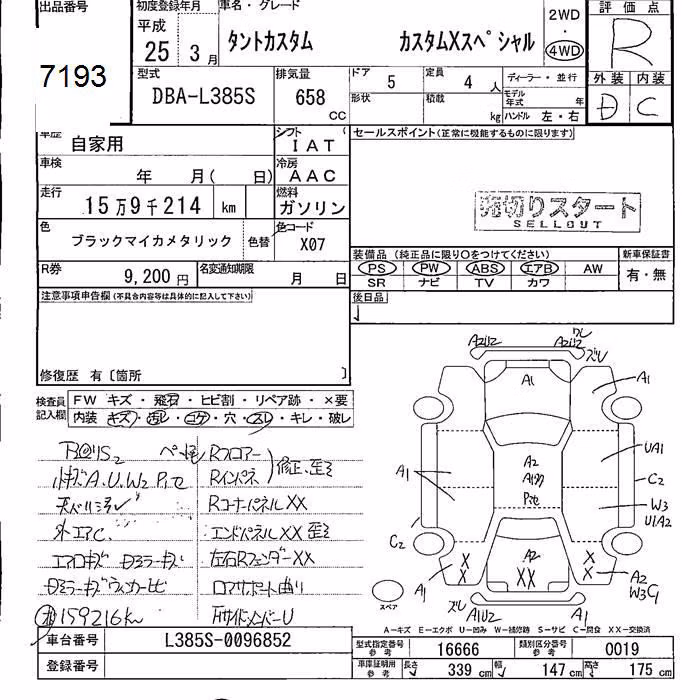 出品番号
7193
初度登録年月
平成
25年 3月
車名・グレード
タントカスタム カスタムXスペシャル
2WD
・
4WD
評価点
R
外装 内装
D C
型式
DBA-L385S
排気量
658 CC
ドア 5
定員 4 人
形状
積載 kg
ディーラー・並行
モデル年式 年
ハンドル 左・右
車歴
自家用
シフト
IAT
車検
年 月( 日)
冷房
AAC
走行
15万9千214 km
燃料
ガソリン
色
ブラックマイカメタリック
色替
色コード
X07
R券
9,200円
名変通知期限
月 日
セールスポイント(正常に機能するものに限ります)
売切りスタート
SELLOUT
装備品 (純正品に限り○をつけてください)
PS PW ABS エアB AW
SR ナビ TV カワ
新車保証書
有・無
後日品
注意事項申告欄(不具合内容等は具体的に記入して下さい)
修復歴 有〔箇所 〕
検査員記入欄
FW キズ・飛石・ヒビ割・リペア跡・×要
内装 キズ・汚レ・コゲ・穴・スレ・キレ・破レ
Rフロアー
Rインパネ 修正、歪ミ
RコーナパネルXX
エンドパネルXX 歪ミ
左右RフェンダーXX
ロアサポート曲り
外エアC.
エアロキズ
159216km
A2U2
A2U2
ズレ
A1
A1
UA1
C2
W3
U1A2
A2
A1
A1
C2
XX
A2
XX
XX
A2
W3C1
A1
ズレ
A1U2
A1
スペア
A-キズ E-エクボ U-凹み W-補修跡 S-サビ C-腐食 XX-交換済
車台番号
L385S-0096852
登録番号
型式指定番号 参考
16666
類別区分番号 参考
0019
車庫証明用 参考
長さ 339 cm 幅 147 cm 高さ 175 cm